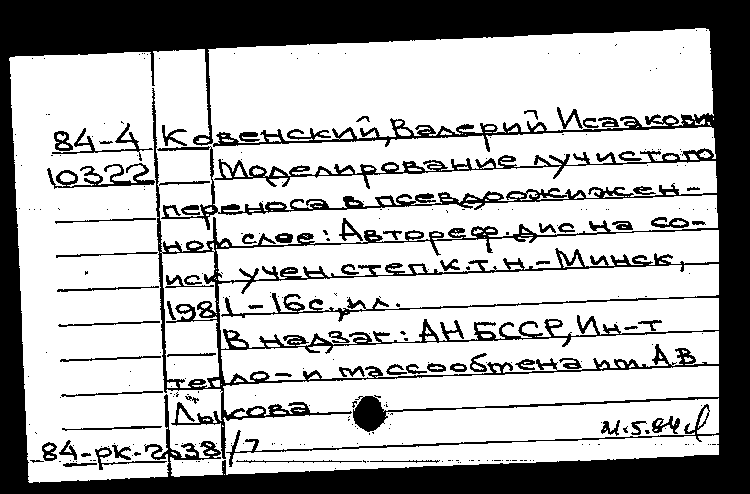 84-4 Ковенский, Валерий Исаакович
10322 Моделирование лучистого
переноса в псевдоожижен-
ном слое: Автореф. дис. на со-
иск учен. степ. к. т. н. - Минск,
1981. - 16 с., ил.
В надзаг.: АН БССР, Ин-т
тепло- и массообмена им. А.В.
Лыкова
84-рк-2038/7